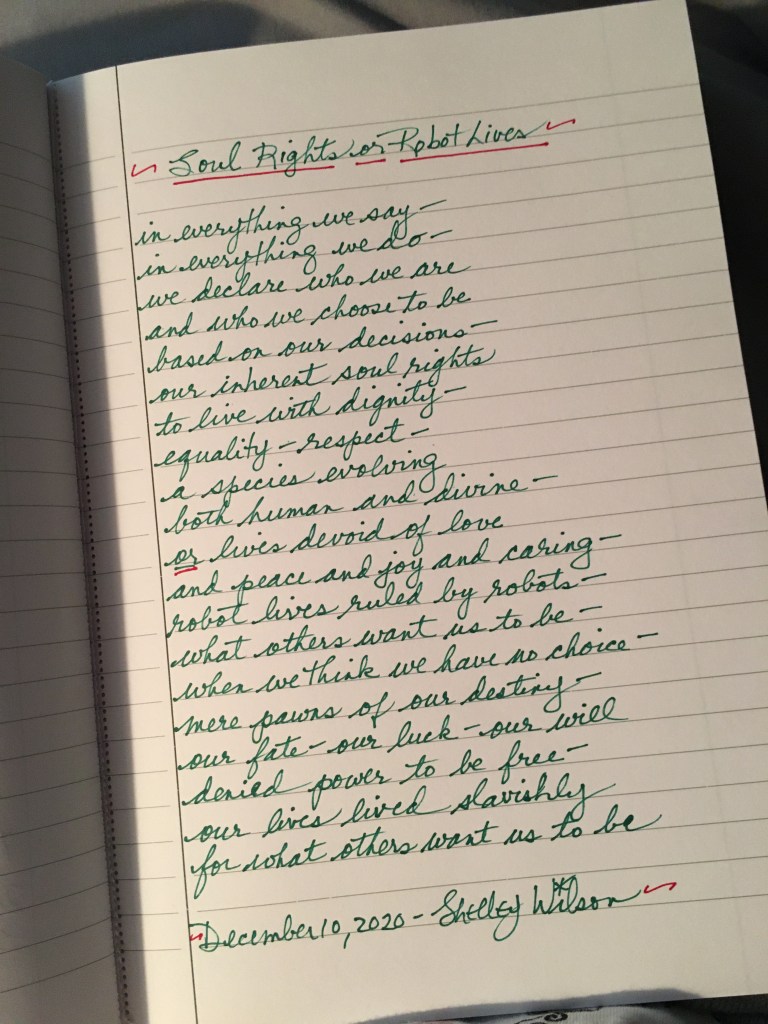 ~ Soul Rights or Robot Lives ~
in everything we say –
in everything we do –
we declare who we are
and who we choose to be
based on our decisions –
our inherent soul rights
to live with dignity –
equality – respect –
a species evolving
both human and divine –
or lives devoid of love
and peace and joy and caring –
robot lives ruled by robots –
what others want us to be –
when we think we have no choice –
mere pawns of our destiny –
our fate – our luck – our will
denied power to be free –
our lives lived slavishly
for what others want us to be
~ December 10, 2020 – Shelley Wilson ~